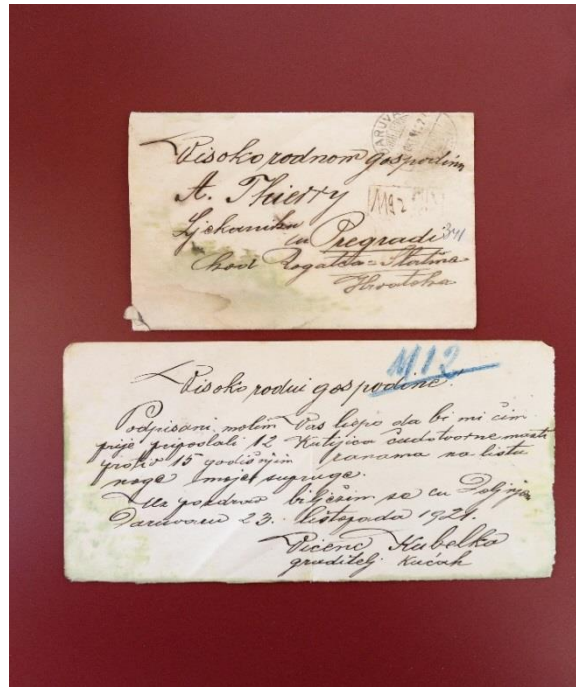 DARUVA
Visokorodnom gospodinu
A. Thierry
Ljekarniku
u Pregradi 341
kod Rogatca-Slatina
Hrvatska
1192
M12
Visoko rodni gospodine.
Podpisani molim Vas liepo da bi mi čim
prije priposlali 12 Kutijica čudotvorne masti
protiv 15 godišnjim ranama na listu
noge moje supruge.
Uz pozdrav bilježim se u Doljnjem
Daruvaru 23. listopada 1921.
Vicenc Kubelka
graditelj kućah